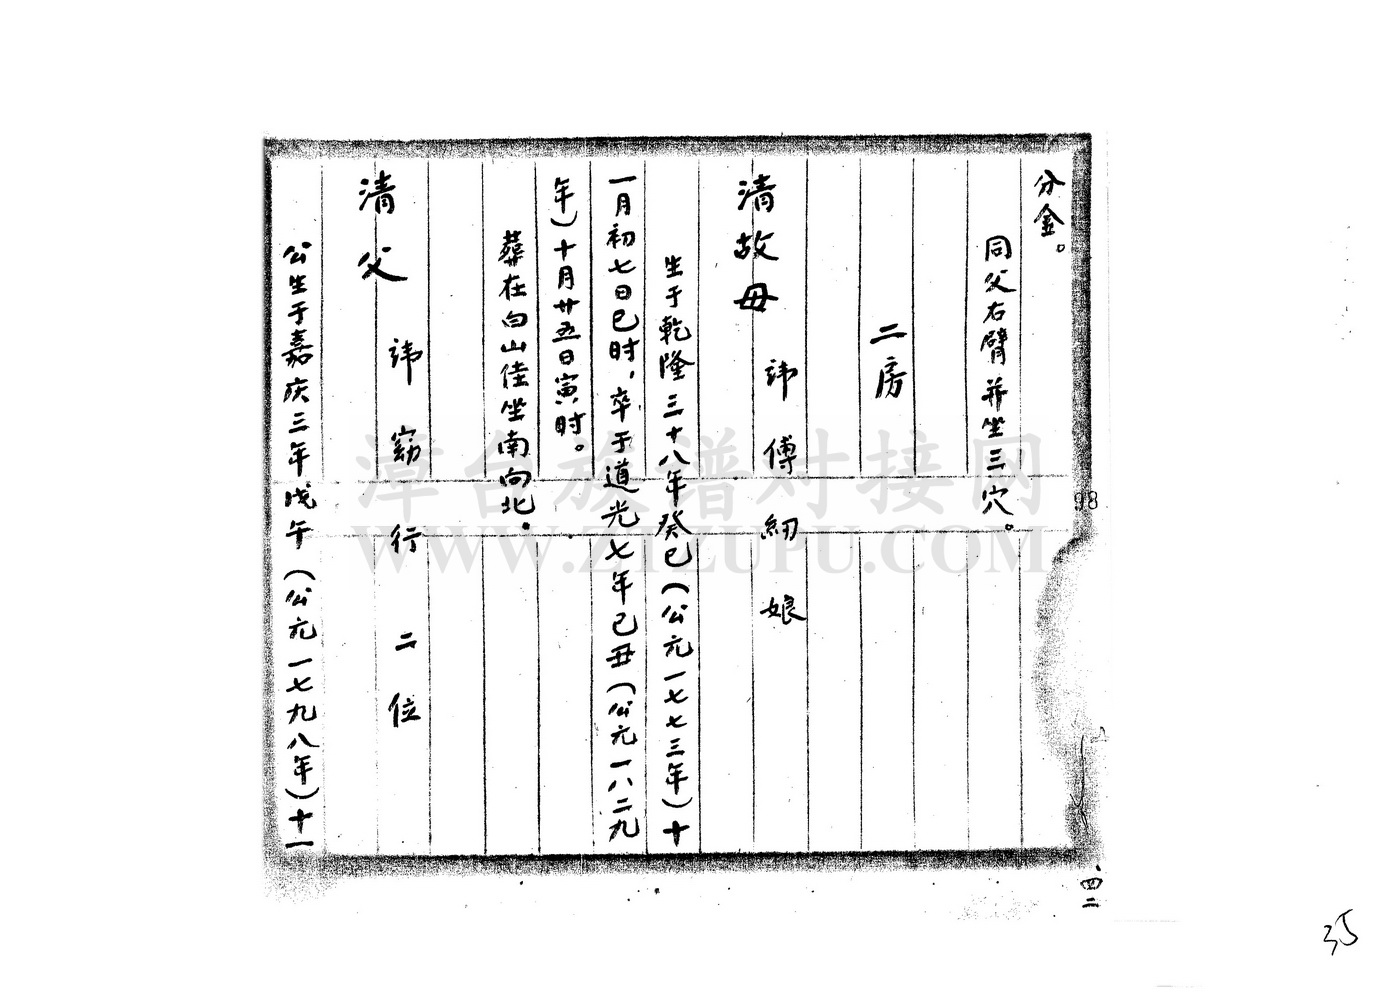 分金。
同父右臂并坐三穴。
二房
清故母 讳傅紉娘
生于乾隆三十八年癸巳(公元一七七三年)十
一月初七日巳时，卒于道光七年己丑(公元一八二九
年)十月廿五日寅时。
葬在白山佳坐南向北.
清父 讳窈行二位
公生于嘉庆三年戊午(公元一七九八年)十一
98
四二
35
漳台族谱对接网
WWW.ZTZUPU.COM